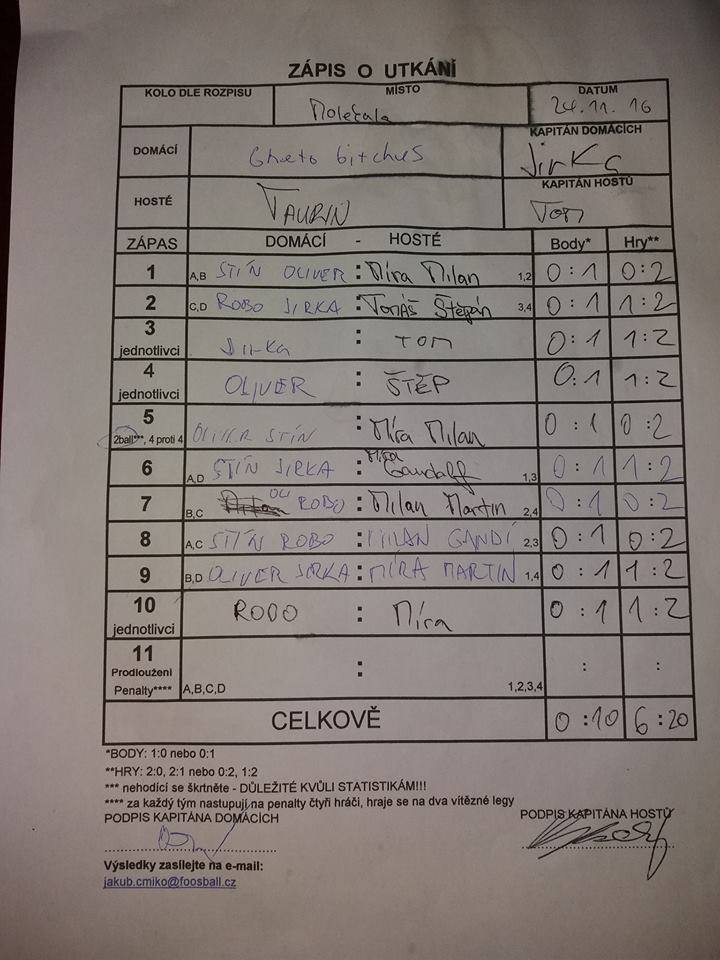 ZÁPIS O UTKÁNÍ
KOLO DLE ROZPISU MÍSTO DATUM
Močečala 24.11.16
DOMÁCÍ Gheto bitchus KAPITÁN DOMÁCÍCH
Jirka
HOSTÉ TAURIN KAPITÁN HOSTŮ
Tom
ZÁPAS DOMÁCÍ - HOSTÉ Body* Hry**
1 A,B STÍN OLIVER : Míra Milan 1,2 0:1 0:2
2 C,D ROBO JIRKA : Tomáš Štěpán 3,4 0:1 1:2
3 jednotlivci Jirka : TOM 0:1 1:2
4 jednotlivci OLIVER : ŠTĚP 0:1 1:2
5 2ball***, 4 proti 4 OLIVER STÍN : Míra Milan 0:1 0:2
6 A,D STÍN JIRKA : Míra Gandalf 1,3 0:1 1:2
7 B,C OLI ROBO : Milan Martin 2,4 0:1 0:2
8 A,C STÍN ROBO : MILAN GANDÍ 2,3 0:1 0:2
9 B,D OLIVER JIRKA : MÍRA MARTIN 1,4 0:1 1:2
10 jednotlivci ROBO : Míra 0:1 1:2
11 Prodloužení : : :
Penalty**** A,B,C,D 1,2,3,4
CELKOVĚ 0:10 6:20
*BODY: 1:0 nebo 0:1
**HRY: 2:0, 2:1 nebo 0:2, 1:2
*** nehodící se škrtněte - DŮLEŽITÉ KVŮLI STATISTIKÁM!!!
**** za každý tým nastupují na penalty čtyři hráči, hraje se na dva vítězné legy
PODPIS KAPITÁNA DOMÁCÍCH PODPIS KAPITÁNA HOSTŮ
Výsledky zasílejte na e-mail:
jakub.cmiko@foosball.cz